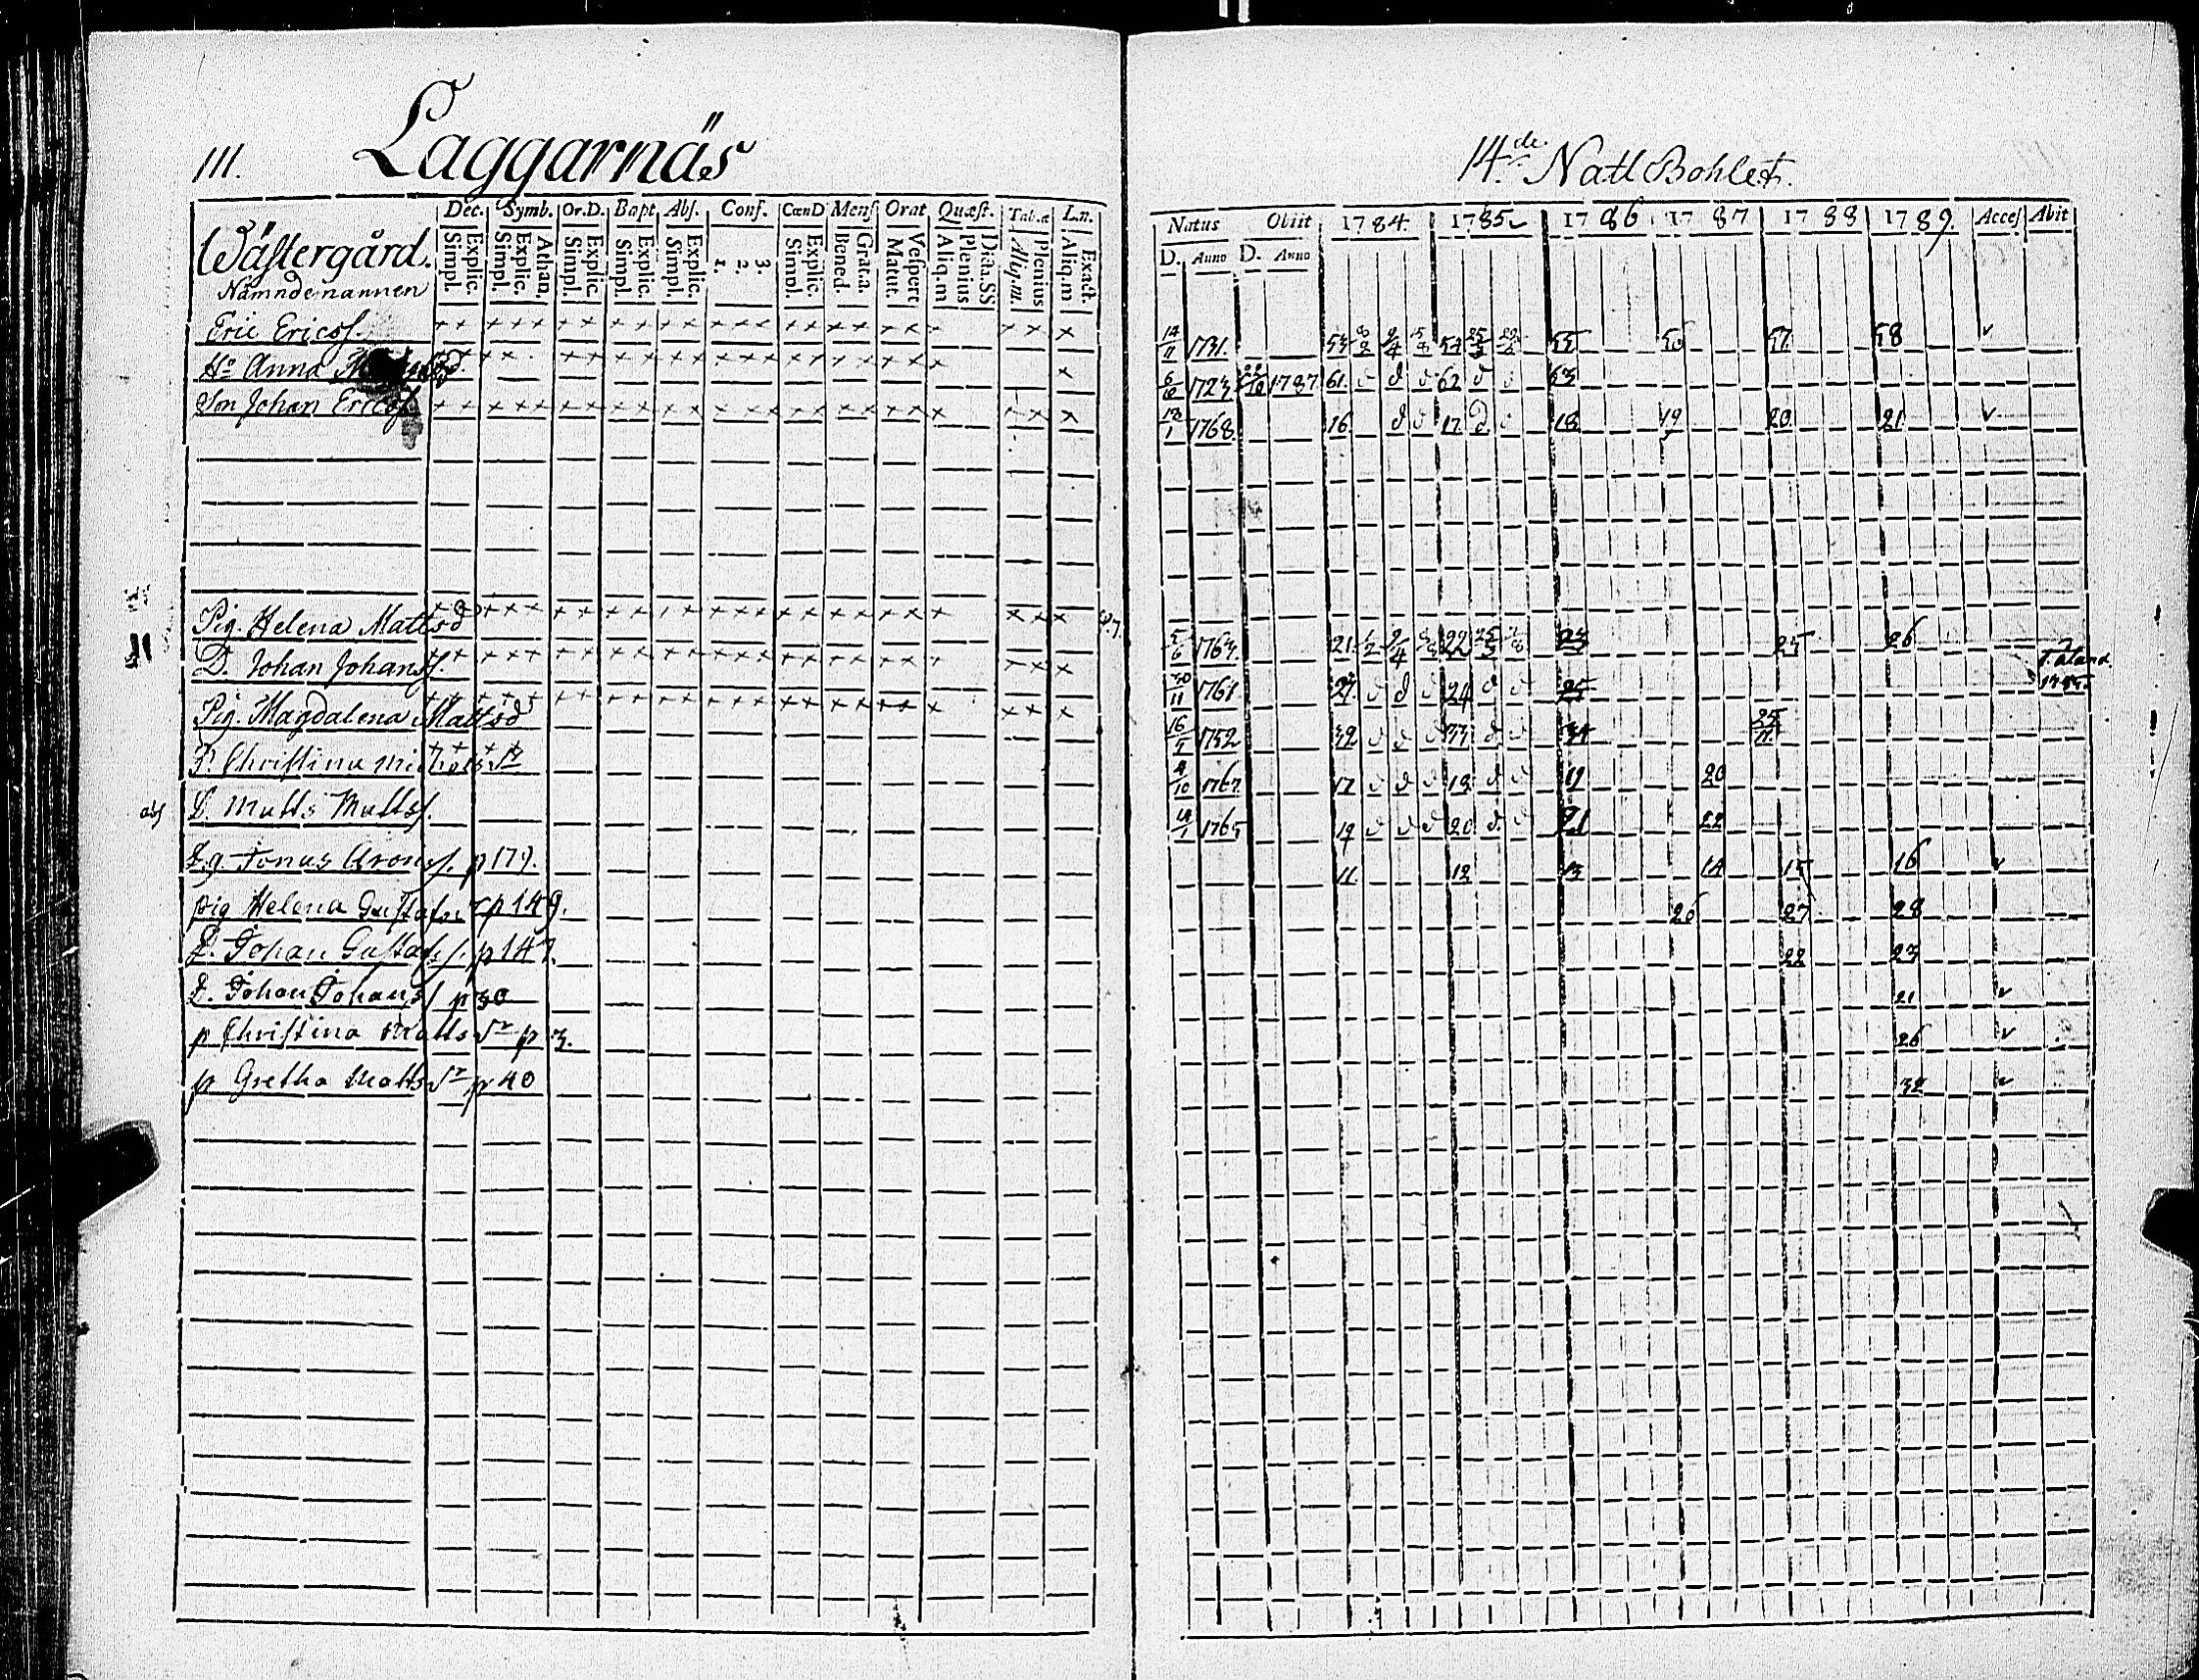 111. Laggarnäs
Dec. Symb. Or.D. Bapt Abſ. Conf. CœnD Menſ Orat Quæſt. Tab.æ L.n.
Simpl. Explic. Simpl. Explic. Athan. Simpl. Explic. Simpl. Explic. Simpl. Explic. 1. 2. 3. Simpl. Explic. Bened. Grat.a. Matut. Veſpert Aliq.m Plenius Dicta.SS Aliq.m. Plenius Aliq.m Exact.
Wäſtergård.
Nämndemannen
Eric Ericsſ.
Hº Anna
Son Johan Ericsſ
Pig. Helena Mattsd
D. Johan Johansſ.
Pig. Magdalena Mattsd
P. Chriſtina
D. Matts Mattsſ.
Jonas Aronsſ. p 179.
pig Helena p 149.
D. Johan Guſtafsſ. p 147.
D. Johan Johansſ p 30
p Chriſtina Matts p 3.
p Gretha Matts p 40
14.de Natl Bohlet.
Natus Obiit 1784. 1785 1786 1787 1788 1789. Acceſ Abit
D. Anno D. Anno
14/11 1731. 53 54 55 56 57 58 v
6/10 1723 1787 61. d d 62 d d 63
1768. 16 d d 17 d d 18 19 20 21 v
5/6 1763. 21 22 23 25 26
30/11 1761 d d 24 d d 25 Åland
16/5 1752 32 d d d 33 d d 34 25/11
4/10 1767 17 d d d 18 d d 19 20
1765 19 d d d 20 d d 21 22
11 12 13 14 15 16 v
26 27 28
22 23
21 v
26 v
32 v